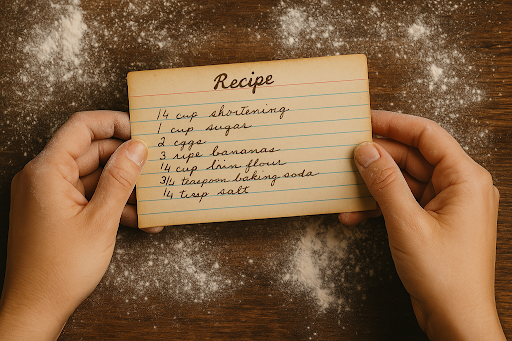 Recipe
¼ cup shortening
1 cup sugar
2 eggs
3 ripe bananas
¼ cup flour
3/4 teaspoon baking soda
¼ salt